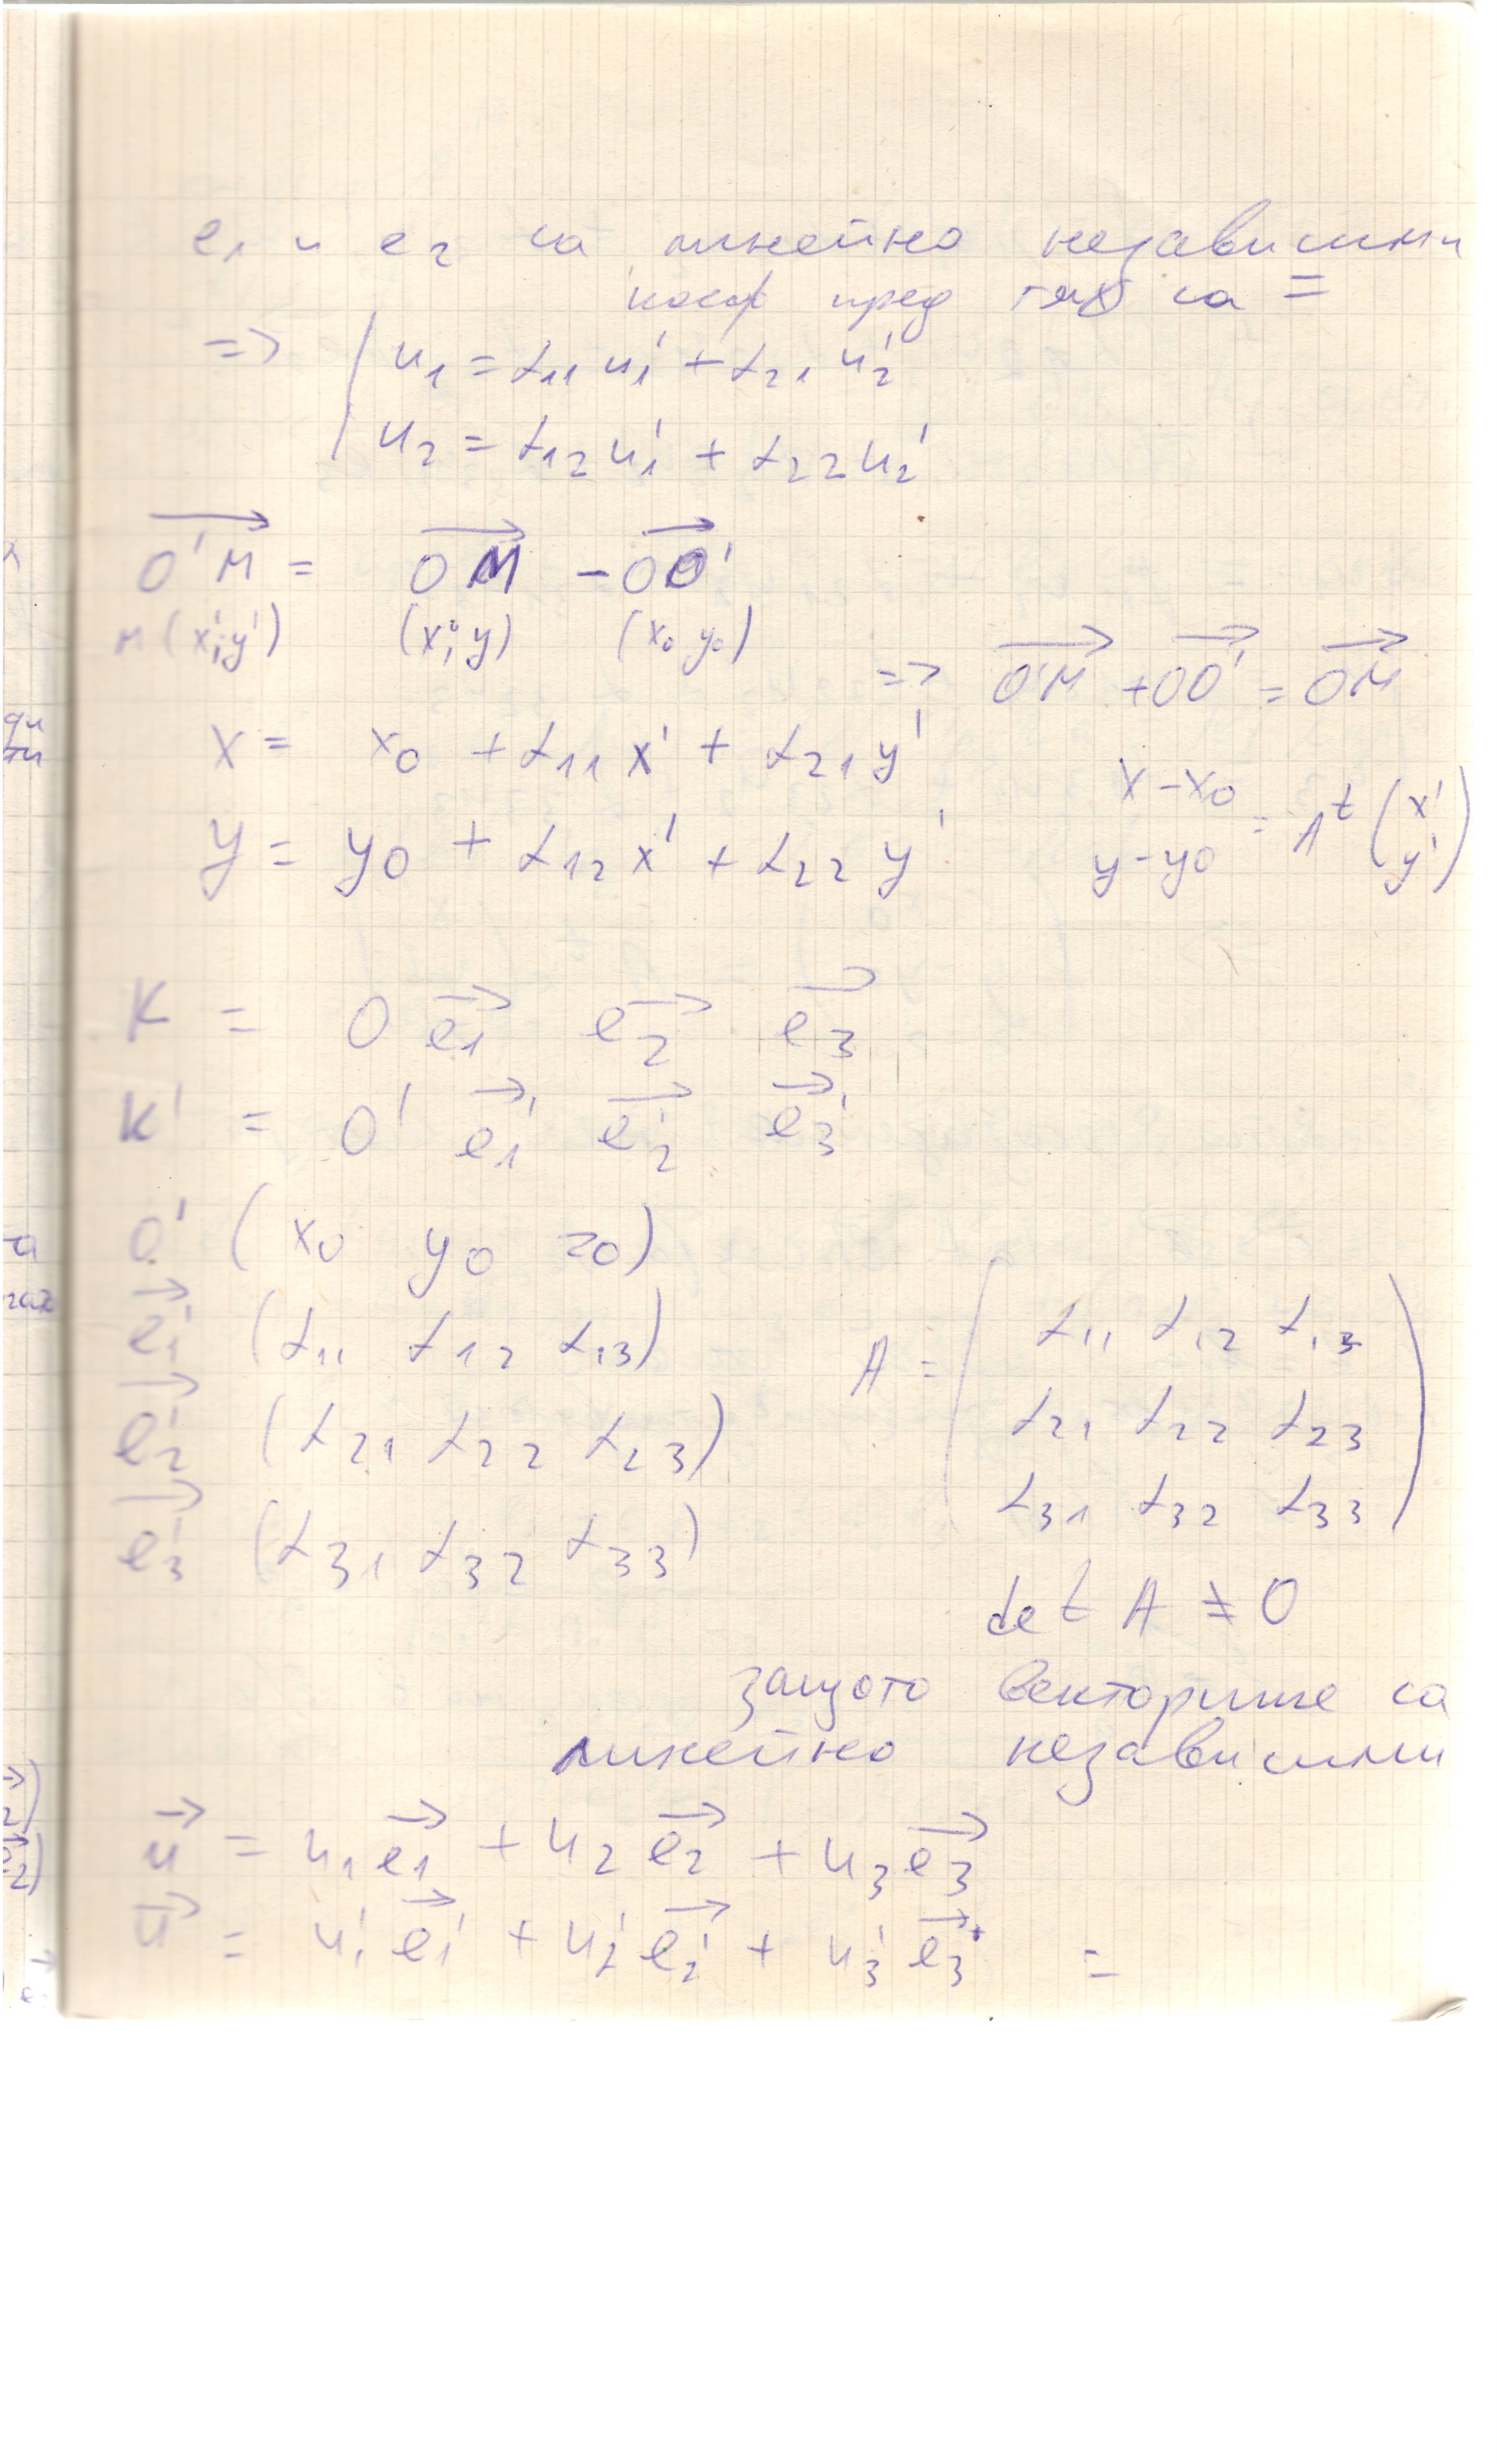 e₁ и e₂ са линейно независими
коеф пред тях са =
=> | u₁ = α₁₁ u₁' + α₂₁ u₂'
u₂ = α₁₂ u₁' + α₂₂ u₂'
O'M→ = OM→ - OO'→
M(x';y') (x;y) (x₀ y₀)
=> O'M→ + OO'→ = OM→
x = x₀ + α₁₁ x' + α₂₁ y'
y = y₀ + α₁₂ x' + α₂₂ y'
x - x₀
y - y₀ = Aᵗ (x' y')
K = O e₁→ e₂→ e₃→
K' = O' e₁'→ e₂'→ e₃'→
O' (x₀ y₀ z₀)
e₁'→ (α₁₁ α₁₂ α₁₃)
e₂'→ (α₂₁ α₂₂ α₂₃)
e₃'→ (α₃₁ α₃₂ α₃₃)
A = ( α₁₁ α₁₂ α₁₃
α₂₁ α₂₂ α₂₃
α₃₁ α₃₂ α₃₃ )
det A ≠ 0
защото векторите са
линейно независими
u→ = u₁e₁→ + u₂e₂→ + u₃e₃→
u→ = u₁'e₁'→ + u₂'e₂'→ + u₃'e₃'→ =